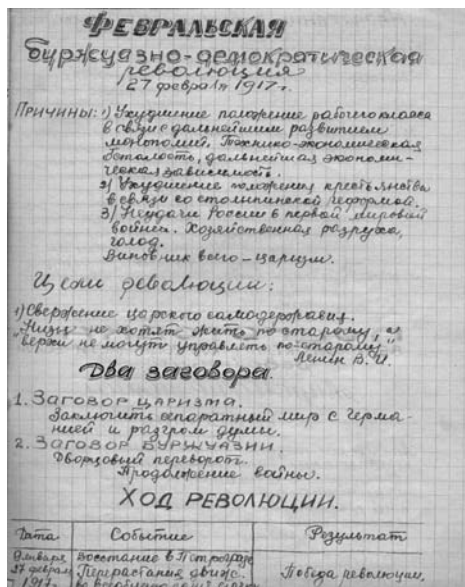 ФЕВРАЛЬСКАЯ
буржуазно-демократическая
революция
27 февраля 1917г.
Причины: 1) Ухудшение положение рабочего класса
в связи с дальнейшим развитием
монополий. Технико-экономическая
отсталость, дальнейшая экономи-
ческая зависимость.
2) Ухудшение положения крестьянства
в связи со столыпинской реформой.
3) Неудачи России в первой мировой
войне. Хозяйственная разруха,
голод.
Виновник всего - царизм.
Цели революции:
1) Свержение царского самодержавия.
"Низы не хотят жить по старому, а
верхи не могут управлять по-старому"
Ленин В.И.
Два заговора.
1. Заговор царизма.
Заключить сепаратный мир с Герма-
нией и разгром думы.
2. Заговор буржуазии.
Дворцовый переворот.
Продолжение войны.
ХОД РЕВОЛЮЦИИ.
Дата Событие Результат
9 января Восстание в Петрограде
27 феврал Перерастания движ. Победа революции
1917г.